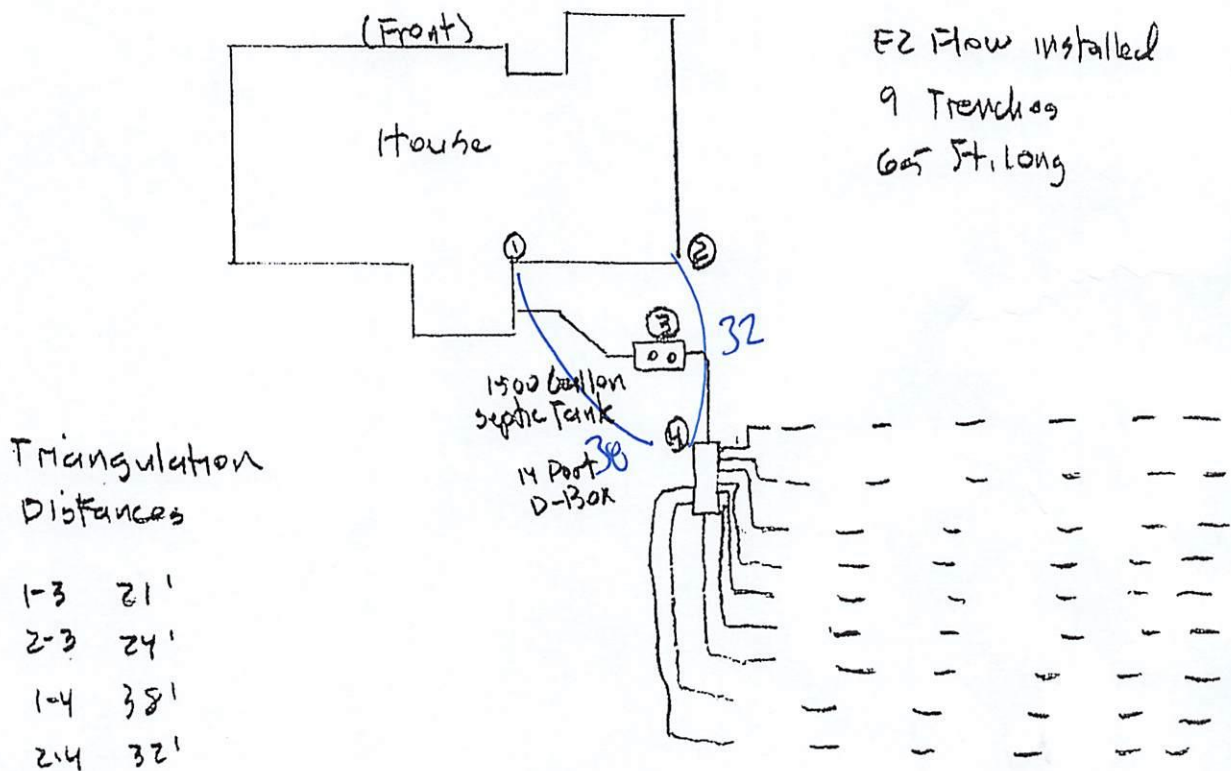 (Front)
House
EZ Flow installed
9 Trenches
65 ft. long
1
2
3
32
1500 Gallon
Septic Tank
4
38
14 Port
D-Box
Triangulation
Distances
1-3 21'
2-3 24'
1-4 38'
2-4 32'